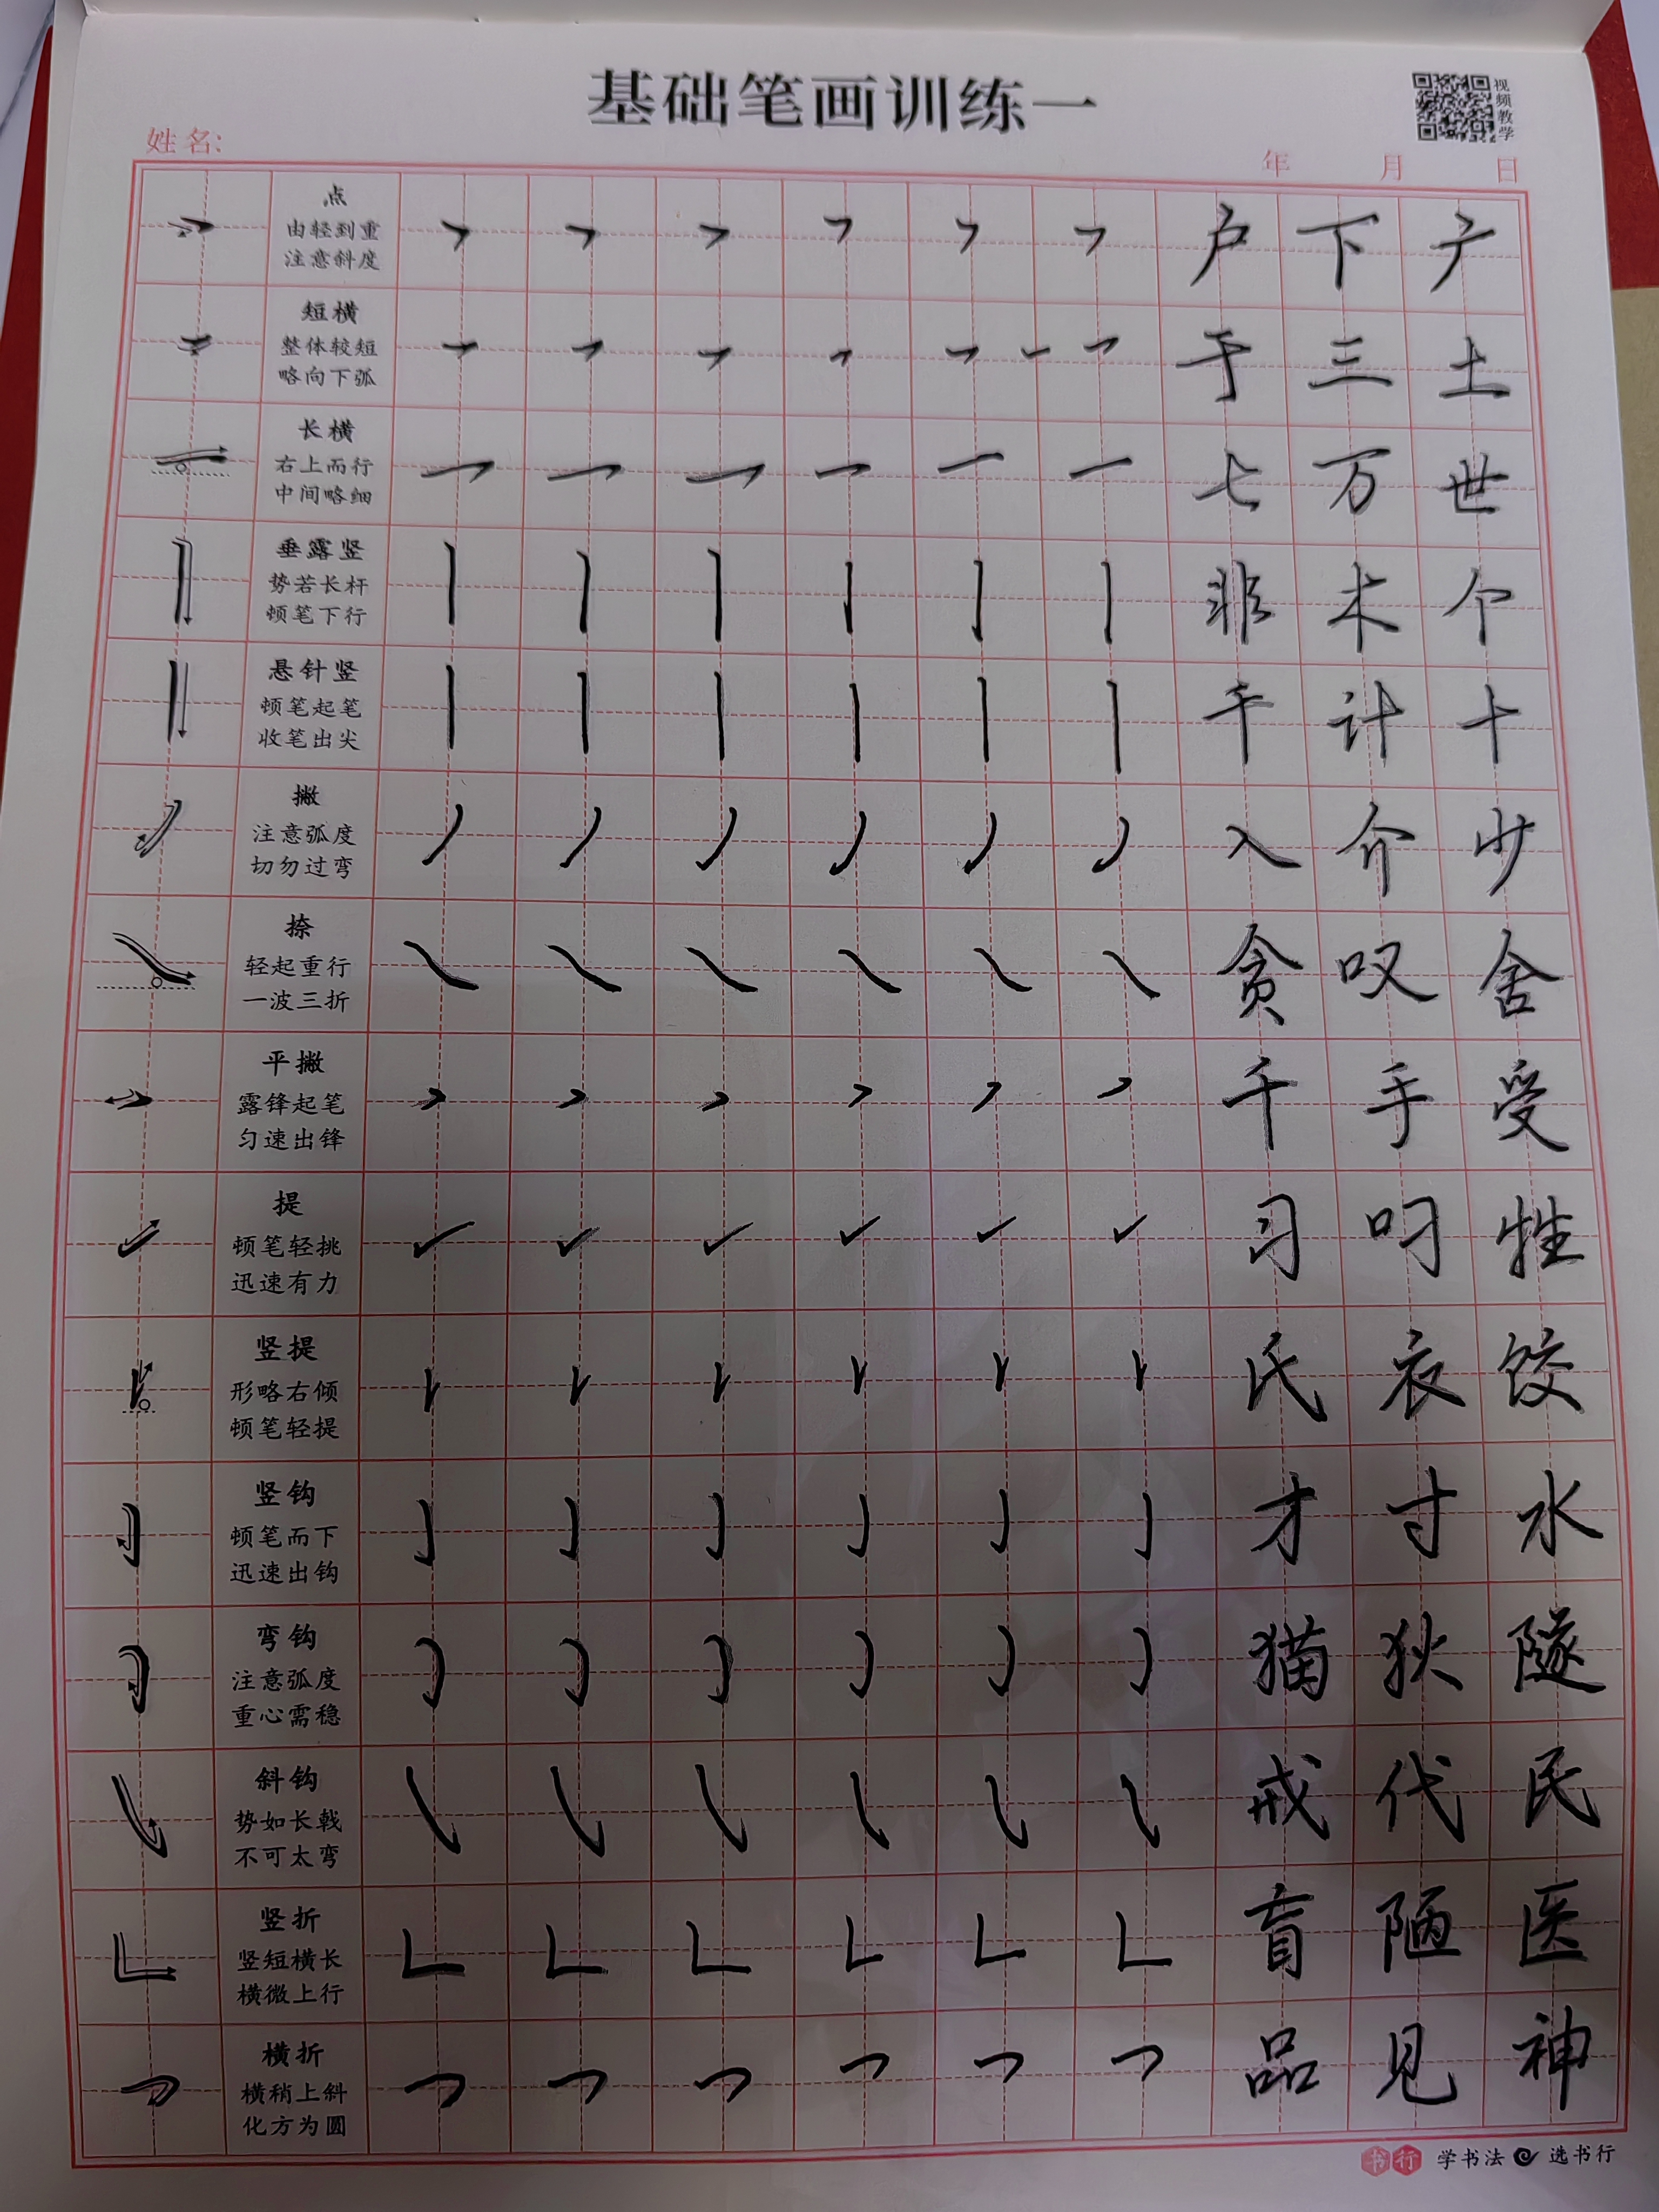 基础笔画训练一
视频教学
姓名:
年 月 日
点
由轻到重
注意斜度
户 下 广
短横
整体较短
略向下弧
于 三 土
长横
右上而行
中间略细
七 万 世
垂露竖
势若长杆
顿笔下行
非 木 个
悬针竖
顿笔起笔
收笔出尖
干 计 十
撇
注意弧度
切勿过弯
入 介 少
捺
轻起重行
一波三折
贪 叹 舍
平撇
露锋起笔
匀速出锋
千 手 受
提
顿笔轻挑
迅速有力
习 叼 牲
竖提
形略右倾
顿笔轻提
氏 衣 饺
竖钩
顿笔而下
迅速出钩
才 寸 水
弯钩
注意弧度
重心需稳
猫 狄 隧
斜钩
势如长戟
不可太弯
戒 代 民
竖折
竖短横长
横微上行
盲 陋 医
横折
横稍上斜
化方为圆
品 见 神
书行 学书法 选书行